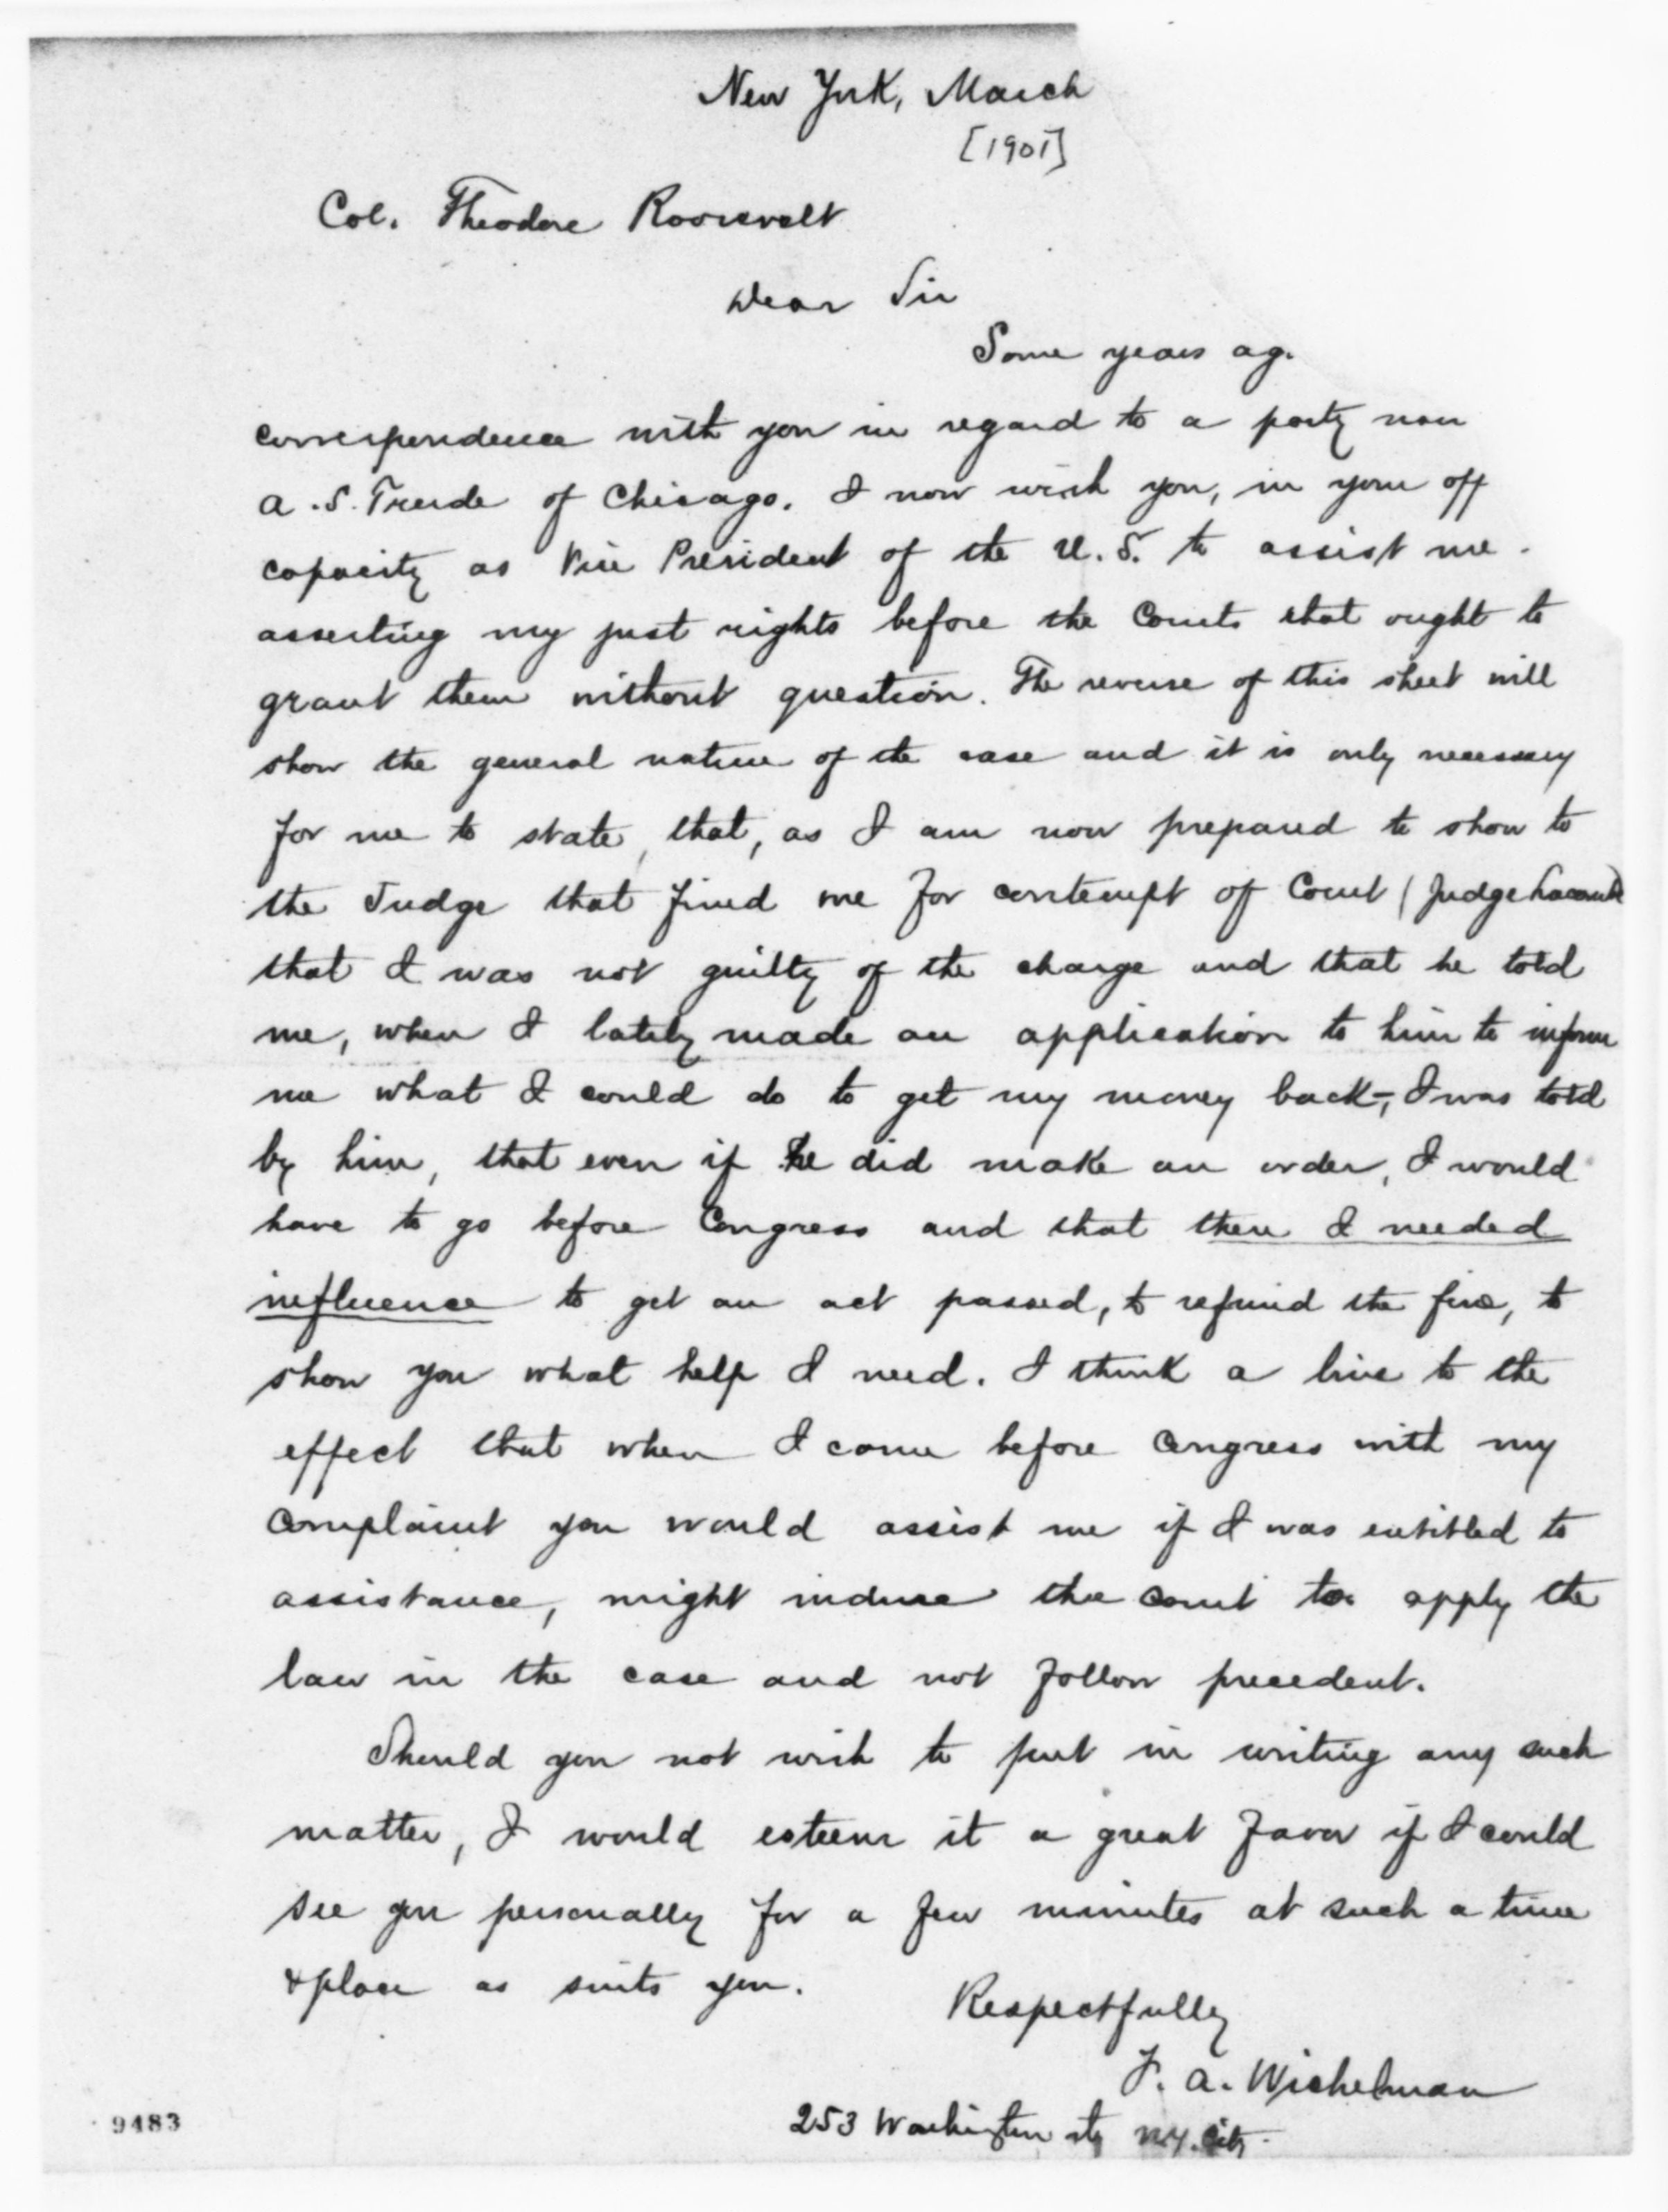 New York, March
[1901]
Col. Theodore Roosevelt
Dear Sir
Some years ag
correspondence with you in regard to a party
A. S. Trude of Chicago. I now wish you, in your off
capacity as Vice President of the U. S. to assist me
asserting my just rights before the Courts that ought to
grant them without question. The reverse of this sheet will
show the general nature of the case and it is only necessary
for me to state, that, as I am now prepared to show to
the Judge that fined me for contempt of Court (Judge Lacombe)
that I was not guilty of the charge and that he told
me, when I lately made an application to him to inform
me what I could do to get my money back-, I was told
by him, that even if he did make an order, I would
have to go before Congress and that there I needed
influence to get an act passed, to refund the fine, to
show you what help I need. I think a line to the
effect that when I come before Congress with my
complaint you would assist me if I was entitled to
assistance, might induce the court to apply the
law in the case and not follow precedent.
Should you not wish to put in writing any such
matter, I would esteem it a great favor if I could
see you personally for a few minutes at such a time
& place as suits you.
Respectfully
F. A. Wichelman
253 Washington St N.Y. City
9483